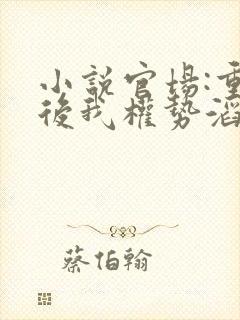 小說官場:重
後我權勢滔
蔡伯翰